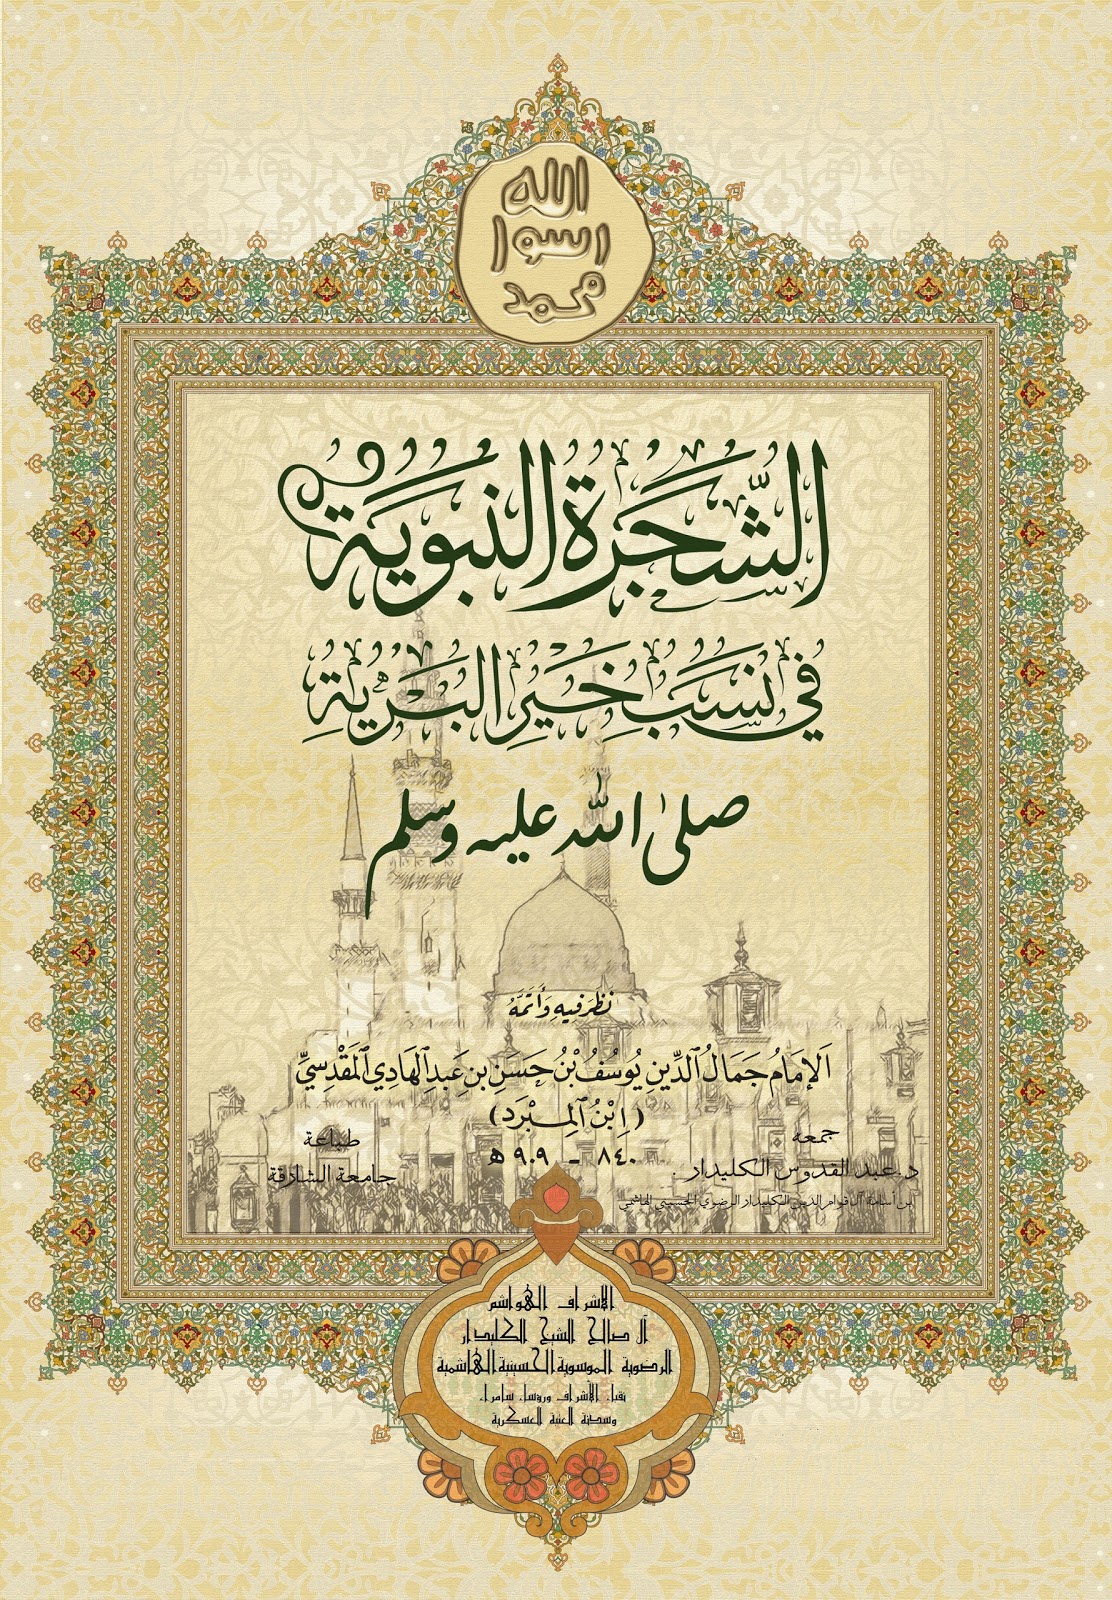 الله
رسول
محمد
الشَّجَرَةُ النَّبَوِيَّةُ
فِي نَسَبِ خَيْرِ البَرِيَّةِ
صلى الله عليه وسلم
نَظَرَ فِيهِ وَأَتَمَّهُ
اَلإِمَامُ جَمَالُ الدِّينِ يُوسُفُ بْنُ حَسَنِ بنِ عَبدِ الهَادِي المَقْدِسِيِّ
(اِبْنُ المِبْرَد)
٨٤٠ - ٩٠٩ هـ
جمعه
د. عبد القدوس الكليدار
ابن أسامة آل قوام الدين الكليدار الرضوي الحسيني الهاشمي
طباعة
جامعة الشارقة
الاشراف الهواشم
آل صالح الشيخ الكليدار
الرضوية الموسوية الحسينية الهاشمية
نقباء الأشراف ورؤساء سامراء
وسدنة العتبة العسكرية